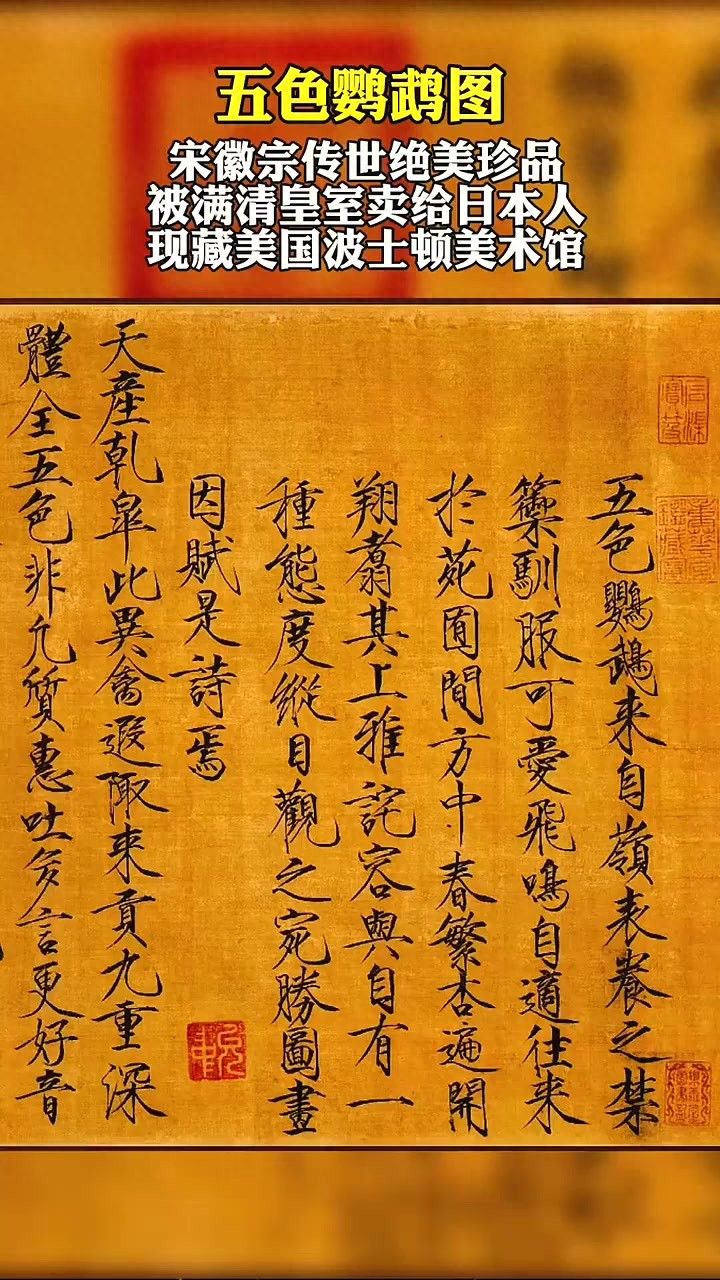 五色鹦鹉图
宋徽宗传世绝美珍品
被满清皇室卖给日本人
现藏美国波士顿美术馆
五色鸚鵡来自嶺表養之禁
籞馴服可愛飛鳴自適往来
於苑囿間方中春繁杏遍開
翔翥其上雅詫容與自有一
種態度縱目觀之宛勝圖畫
因賦是詩焉
天産乾皐此異禽遐陬来貢九重深
體全五色非凡質惠吐多言更好音